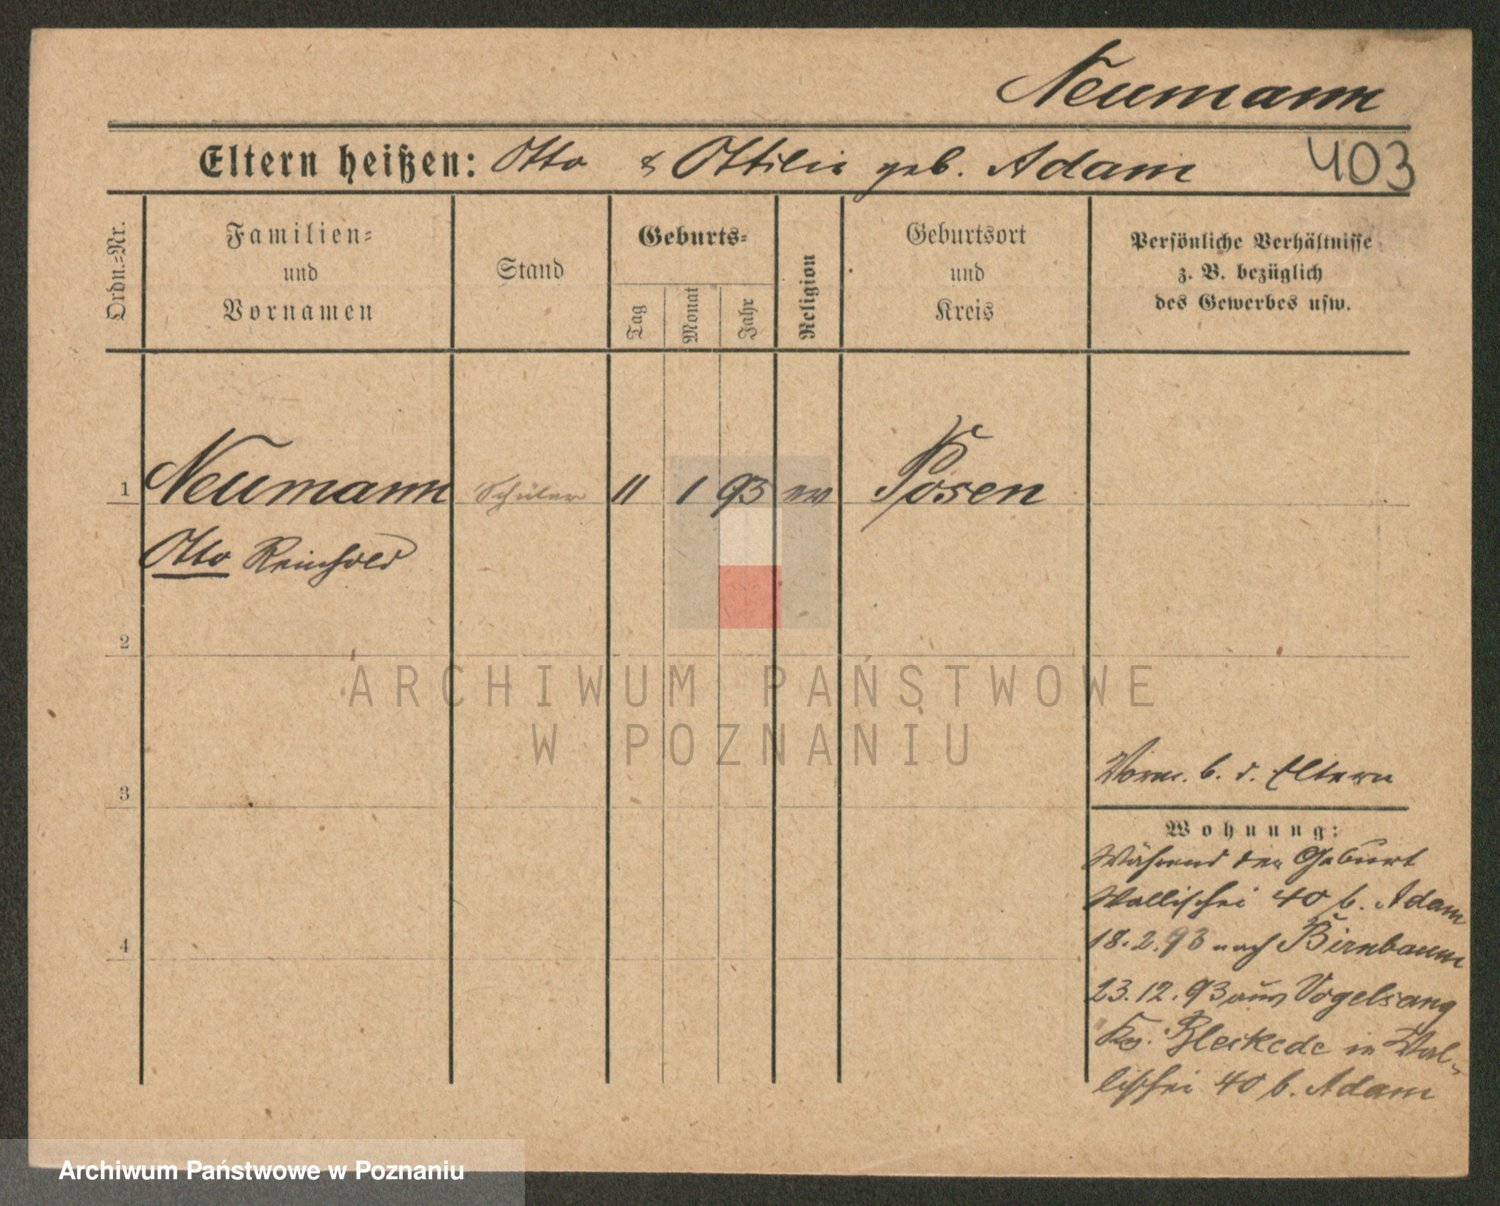 Neumann
Eltern heißen: Otto & Ottilie geb. Adam 403
Ordn.-Nr.
Familien-
und
Vornamen
Stand
Geburts-
Tag
Monat
Jahr
Religion
Geburtsort
und
Kreis
Persönliche Verhältnisse
z. B. bezüglich
des Gewerbes usw.
1 Neumann Schüler 11 1 93 ev Posen
Otto Reinhold
2
ARCHIWUM PAŃSTWOWE
W POZNANIU
3
4
b. d. Eltern
Wohnung:
Während der Geburt
Wallischei 40 b. Adam
18.2.93 nach Birnbaum
23.12.93 aus Vogelsang
Kr. Bleckede in Wal-
lischei 40 b. Adam
Archiwum Państwowe w Poznaniu